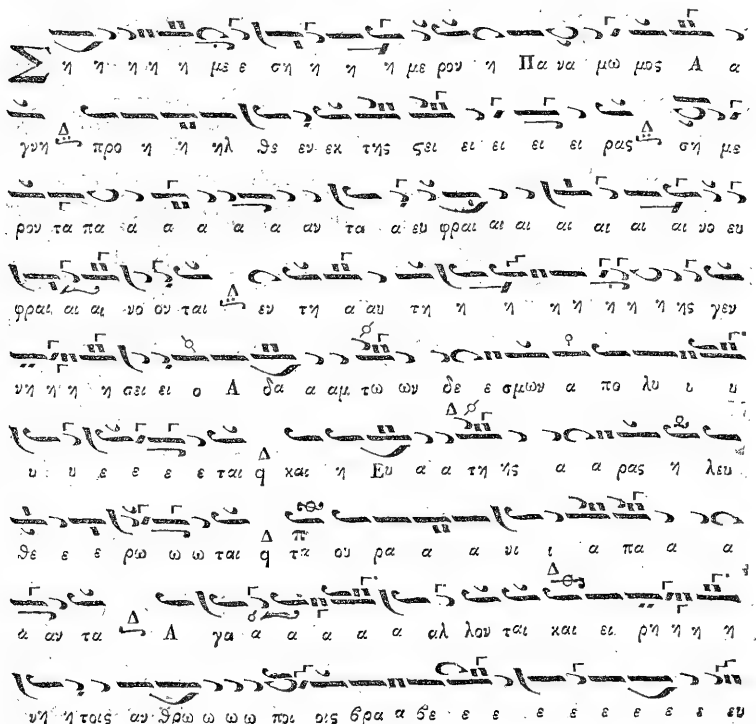 Ση η η η η με ε ση η η η με ρον η Πα να μω μος Α α
γνη προ η η ηλ θε εν εκ της ςει ει ει ει ει ρας ση με
ρον τα πα α α α α α αν τα α ευ φραι αι αι αι αι αι αι νο ευ
φραι αι αι νο ον ται εν τη α αυ τη η η η η η η ης γεν
νη η η η σει ει ο Α δα α αμ τω ων δε ε σμων α πο λυ υ υ
υ υ ε ε ε ε ται και η Ευ α α τη ης α α ρας η λευ
θε ε ε ρω ω ω ται τα ου ρα α α νι ι α πα α α
α αν τα Α γα α α α α α αλ λον ται και ει ρη η η η
νη η τοις αν θρω ω ω ω ποι οις βρα α βε ε ε ε ε ε ε ε ευ